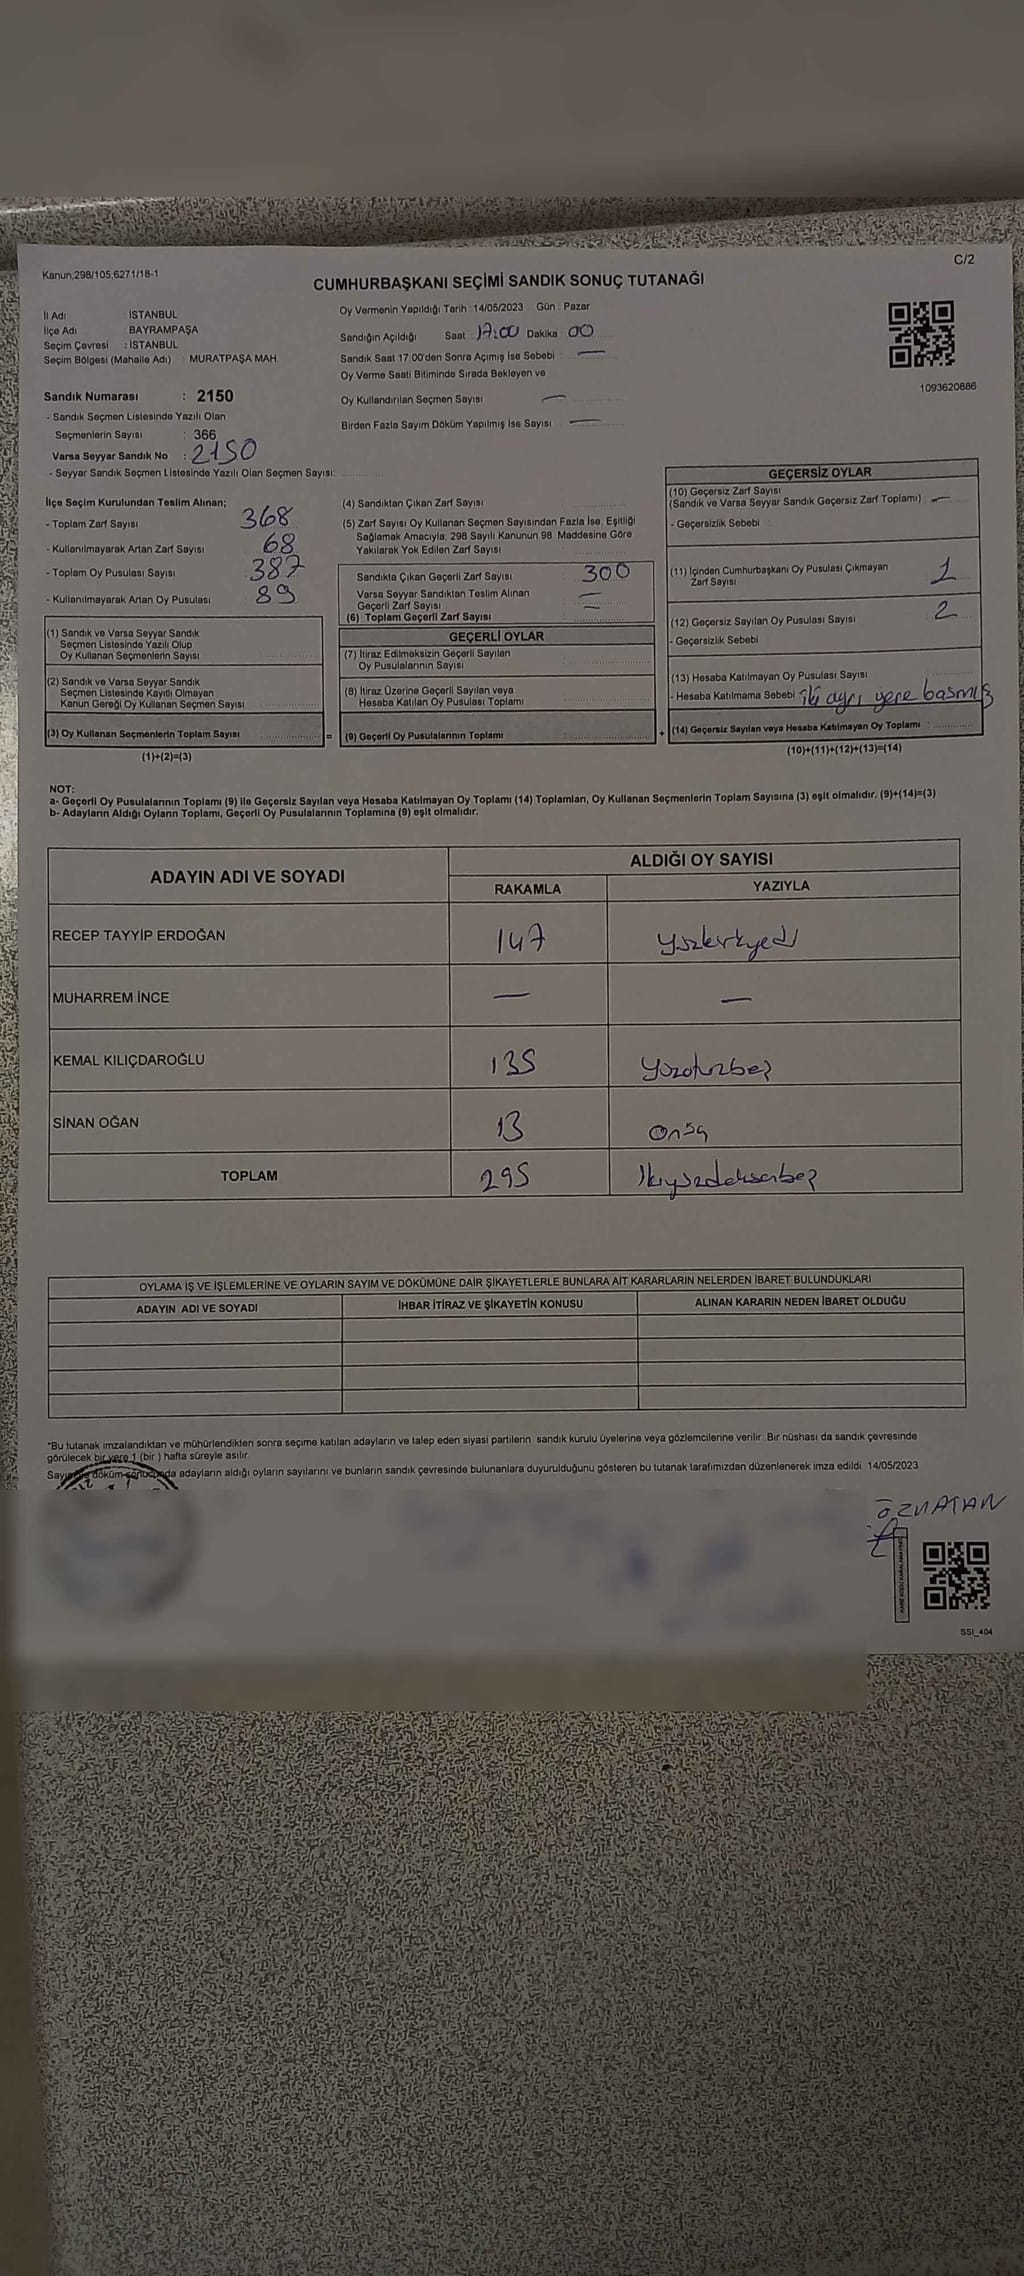 C/2
Kanun,298/105,6271/18-1
CUMHURBAŞKANI SEÇİMİ SANDIK SONUÇ TUTANAĞI
İl Adı : İSTANBUL
İlçe Adı : BAYRAMPAŞA
Seçim Çevresi : İSTANBUL
Seçim Bölgesi (Mahalle Adı) : MURATPAŞA MAH.
Sandık Numarası : 2150
- Sandık Seçmen Listesinde Yazılı Olan
Seçmenlerin Sayısı : 366
Varsa Seyyar Sandık No : 2150
- Seyyar Sandık Seçmen Listesinde Yazılı Olan Seçmen Sayısı:
Oy Vermenin Yapıldığı Tarih : 14/05/2023 Gün : Pazar
Sandığın Açıldığı Saat : 17:00 Dakika 00
Sandık Saat 17:00'den Sonra Açımış İse Sebebi : —
Oy Verme Saati Bitiminde Sırada Bekleyen ve
Oy Kullandırılan Seçmen Sayısı —
Birden Fazla Sayım Döküm Yapılmış İse Sayısı —
1093620886
İlçe Seçim Kurulundan Teslim Alınan;
- Toplam Zarf Sayısı 368
- Kullanılmayarak Artan Zarf Sayısı 68
- Toplam Oy Pusulası Sayısı 387
- Kullanılmayarak Artan Oy Pusulası 89
(1) Sandık ve Varsa Seyyar Sandık
Seçmen Listesinde Yazılı Olup
Oy Kullanan Seçmenlerin Sayısı
(2) Sandık ve Varsa Seyyar Sandık
Seçmen Listesinde Kayıtlı Olmayan
Kanun Gereği Oy Kullanan Seçmen Sayısı
(3) Oy Kullanan Seçmenlerin Toplam Sayısı
(1)+(2)=(3)
(4) Sandıktan Çıkan Zarf Sayısı
(5) Zarf Sayısı Oy Kullanan Seçmen Sayısından Fazla İse, Eşitliği
Sağlamak Amacıyla, 298 Sayılı Kanunun 98. Maddesine Göre
Yakılarak Yok Edilen Zarf Sayısı
Sandıkta Çıkan Geçerli Zarf Sayısı 300
Varsa Seyyar Sandıktan Teslim Alınan —
Geçerli Zarf Sayısı —
(6) Toplam Geçerli Zarf Sayısı
GEÇERLİ OYLAR
(7) İtiraz Edilmeksizin Geçerli Sayılan
Oy Pusulalarının Sayısı
(8) İtiraz Üzerine Geçerli Sayılan veya
Hesaba Katılan Oy Pusulası Toplamı
= (9) Geçerli Oy Pusulalarının Toplamı
GEÇERSİZ OYLAR
(10) Geçersiz Zarf Sayısı
(Sandık ve Varsa Seyyar Sandık Geçersiz Zarf Toplamı) —
- Geçersizlik Sebebi :
(11) İçinden Cumhurbaşkanı Oy Pusulası Çıkmayan
Zarf Sayısı 1
(12) Geçersiz Sayılan Oy Pusulası Sayısı 2
- Geçersizlik Sebebi
(13) Hesaba Katılmayan Oy Pusulası Sayısı
- Hesaba Katılmama Sebebi iki ayrı yere basmış
+ (14) Geçersiz Sayılan veya Hesaba Katılmayan Oy Toplamı :
(10)+(11)+(12)+(13)=(14)
NOT:
a- Geçerli Oy Pusulalarının Toplamı (9) ile Geçersiz Sayılan veya Hesaba Katılmayan Oy Toplamı (14) Toplamları, Oy Kullanan Seçmenlerin Toplam Sayısına (3) eşit olmalıdır. (9)+(14)=(3)
b- Adayların Aldığı Oyların Toplamı, Geçerli Oy Pusulalarının Toplamına (9) eşit olmalıdır.
ADAYIN ADI VE SOYADI
ALDIĞI OY SAYISI
RAKAMLA YAZIYLA
RECEP TAYYİP ERDOĞAN 147 yüzkırkyedi
MUHARREM İNCE — —
KEMAL KILIÇDAROĞLU 135 yüzotuzbeş
SİNAN OĞAN 13 onüç
TOPLAM 295 ikiyüzdoksanbeş
OYLAMA İŞ VE İŞLEMLERİNE VE OYLARIN SAYIM VE DÖKÜMÜNE DAİR ŞİKAYETLERLE BUNLARA AİT KARARLARIN NELERDEN İBARET BULUNDUKLARI
ADAYIN ADI VE SOYADI İHBAR İTİRAZ VE ŞİKAYETİN KONUSU ALINAN KARARIN NEDEN İBARET OLDUĞU
*Bu tutanak imzalandıktan ve mühürlendikten sonra seçime katılan adayların ve talep eden siyasi partilerin sandık kurulu üyelerine veya gözlemcilerine verilir. Bir nüshası da sandık çevresinde
görülecek bir yere 1 (bir ) hafta süreyle asılır.
Sayım ve döküm sonucunda adayların aldığı oyların sayılarını ve bunların sandık çevresinde bulunanlara duyurulduğunu gösteren bu tutanak tarafımızdan düzenlenerek imza edildi. 14/05/2023
SSI_404